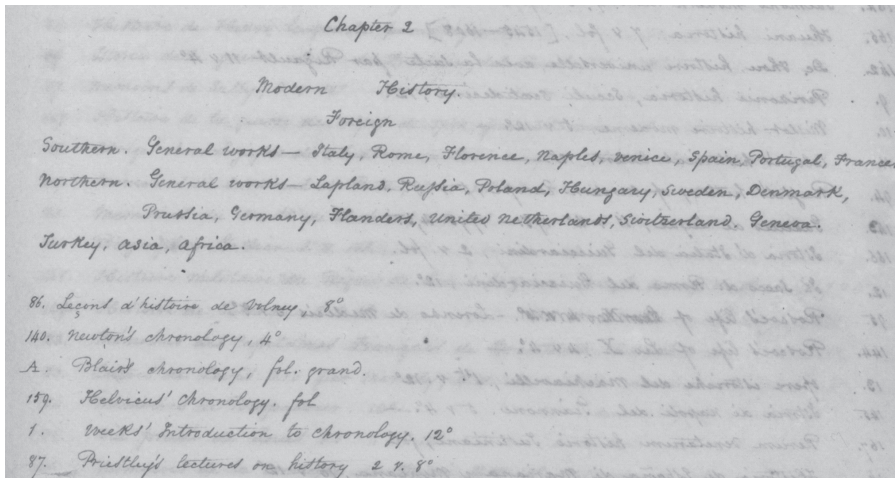 Chapter 2
Modern History.
Foreign
Southern. General works— Italy, Rome, Florence, Naples, Venice, Spain, Portugal, France,
Northern. General works— Lapland, Russia, Poland, Hungary, Sweden, Denmark,
Prussia, Germany, Flanders, United Netherlands, Switzerland. Geneva.
Turkey. Asia, Africa.
86. Leçons d'histoire de Volney, 8°
140. Newton's chronology, 4°
A. Blair's chronology, fol. grand.
159. Helvicus' chronology. fol
1. Weeks' Introduction to chronology. 12°
87. Priestley's lectures on history 2 v. 8°